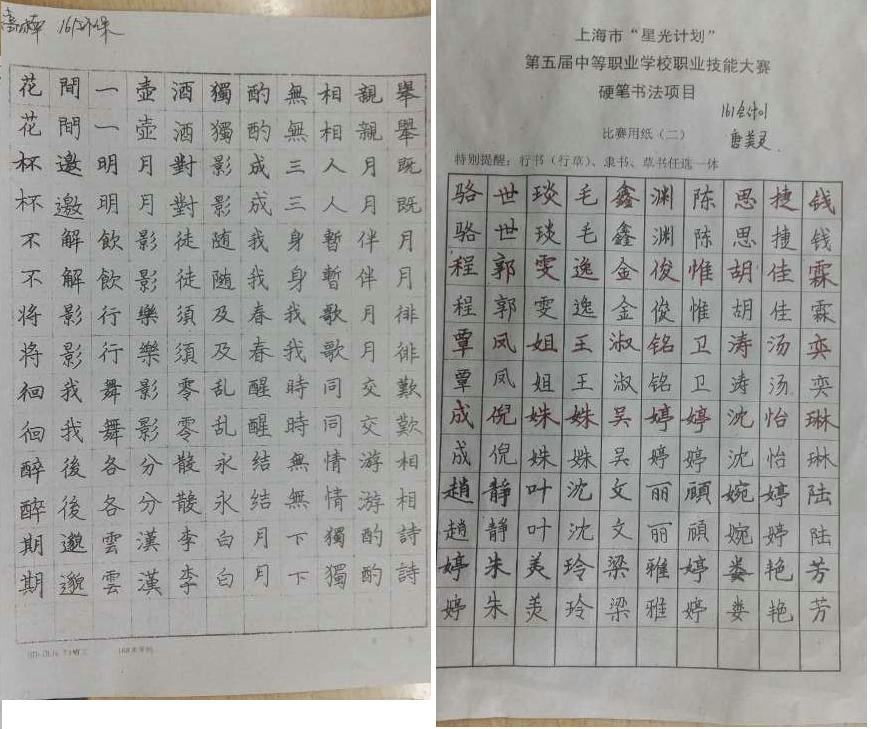 161环保
花間一壺酒獨酌無相親舉
花間一壺酒獨酌無相親舉
杯邀明月對影成三人月既
杯邀明月對影成三人月既
不解飲影徒随我身暫伴月
不解飲影徒随我身暫伴月
将影行樂須及春我歌月徘
将影行樂須及春我歌月徘
徊我舞影零乱醒時同交歎
徊我舞影零乱醒時同交歎
醉後各分散永结無情游相
醉後各分散永结無情游相
期邈雲漢李白月下獨酌詩
期邈雲漢李白月下獨酌詩
上海市“星光计划”
第五届中等职业学校职业技能大赛
硬笔书法项目
161会计01
比赛用纸（二）
唐美灵
特别提醒：行书（行草）、隶书、草书任选一体
骆世琰毛鑫渊陈思捷钱
骆世琰毛鑫渊陈思捷钱
程郭雯逸金俊惟胡佳霖
程郭雯逸金俊惟胡佳霖
覃凤姐王淑铭卫涛汤奕
覃凤姐王淑铭卫涛汤奕
成倪姝姝吴婷婷沈怡琳
成倪姝姝吴婷婷沈怡琳
趙静叶沈文丽頎婉婷陆
趙静叶沈文丽頎婉婷陆
婷朱美玲梁雅婷娄艳芳
婷朱美玲梁雅婷娄艳芳